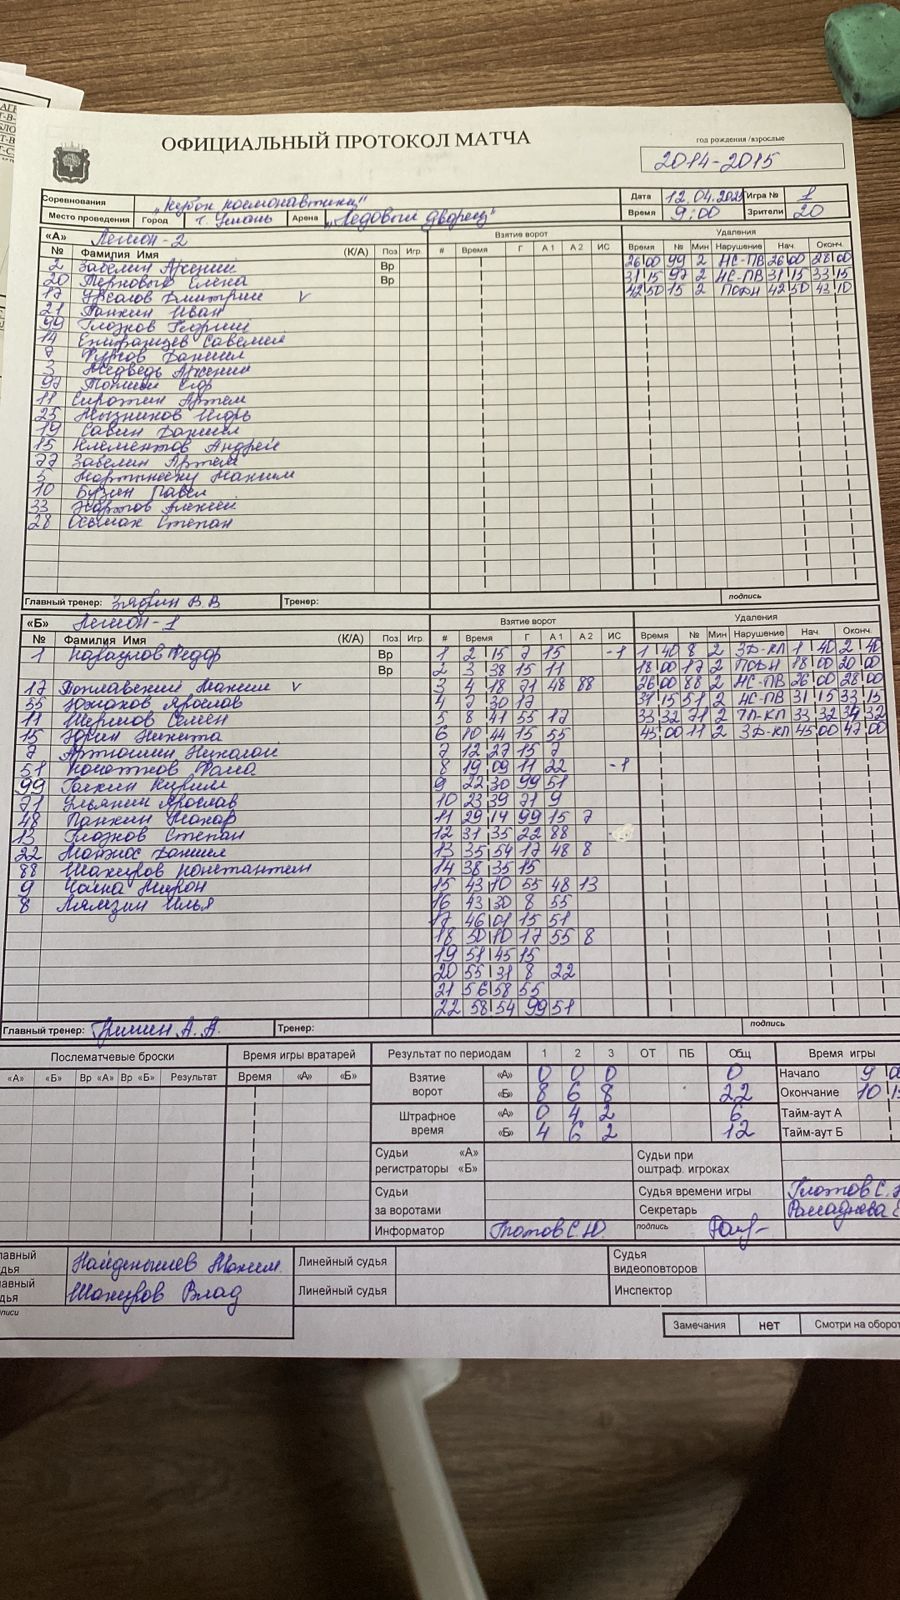 ОФИЦИАЛЬНЫЙ ПРОТОКОЛ МАТЧА
год рождения /взрослые
2014-2015
Соревнования „Кубок космонавтики" Дата 12.04.2025 Игра № 1
Место проведения Город Арена „Ледовый дворец" Время 9:00 Зрители 20
«А» Легион-2 Взятие ворот Удаления
№ Фамилия Имя (К/А) Поз Игр. # Время Г А1 А2 ИС Время № Мин Нарушение Нач. Оконч.
2 Забелин Арсений Вр 26 00 99 2 НС-ПВ 26 00 28 00
20 Терновых Елена Вр 31 15 97 2 НС-ПВ 31 15 33 15
17 Урсалов Дмитрий V 42 50 15 2 ПОДН 42 50 43 10
21 Панкин Иван
99 Глазков Георгий
14 Епифанцев Савелий
7 Фурсов Даниил
3 Медведь Арсений
97 Егор
11 Сиротин Артём
25 Мызников Игорь
19 Савин Даниил
15 Клементов Андрей
77 Забелин Артём
5 Мартынеску Максим
10 Бузин Павел
33 Жартов Алексей
28 Осьмак Степан
Главный тренер: Зябрин В.В Тренер: подпись
«Б» Легион-1 Взятие ворот Удаления
№ Фамилия Имя (К/А) Поз Игр. # Время Г А1 А2 ИС Время № Мин Нарушение Нач. Оконч.
1 Караулов Федор Вр 1 2 15 7 15 -1 1 40 8 2 ЗД-КЛ 1 40 2 40
Вр 2 3 38 15 11 18 00 17 2 ПОДН 18 00 20 00
17 Поплавский Максим V 3 4 18 71 48 88 26 00 88 2 НС-ПВ 26 00 28 00
55 Южаков Ярослав 4 7 30 17 31 15 51 2 НС-ПВ 31 15 33 15
11 Шермов Семён 5 8 41 55 17 33 32 71 2 ТЛ-КЛ 33 32 34 32
15 Юрин Никита 6 10 44 15 55 45 00 11 2 ЗД-КЛ 45 00 47 00
7 Артюшин Николай 7 12 27 15 7
51 Кокотков Рома 8 19 09 11 22 -1
99 Галкин Кирилл 9 22 30 99 51
71 Ульянин Ярослав 10 23 39 71 9
48 Панкин Макар 11 29 14 99 15 7
13 Глазков Степан 12 31 35 22 88
22 Манжос Даниил 13 35 54 17 48 8
88 Шакиров Константин 14 38 35 15
9 Чайка Мирон 15 43 10 55 48 13
8 Лямзин Илья 16 43 30 8 55
17 46 01 15 51
18 50 10 17 55 8
19 51 45 15
20 55 31 8 22
21 56 58 55
22 58 54 99 51
Главный тренер: Гришин А.А. Тренер: подпись
Послематчевые броски Время игры вратарей Результат по периодам 1 2 3 ОТ ПБ Общ Время игры
«А» «Б» Вр «А» Вр «Б» Результат Время «А» «Б» Взятие ворот «А» 0 0 0 0 Начало 9
«Б» 8 6 8 22 Окончание 10
Штрафное время «А» 0 4 2 6 Тайм-аут А
«Б» 4 6 2 12 Тайм-аут Б
Судьи регистраторы «А» «Б» Судьи при оштраф. игроках
Судьи за воротами Судья времени игры Глотов С.
Секретарь
Информатор Глотов С.Ю. подпись
Найденышев Максим Линейный судья Судья видеоповторов
Шакиров Влад Линейный судья Инспектор
Замечания нет Смотри на оборот